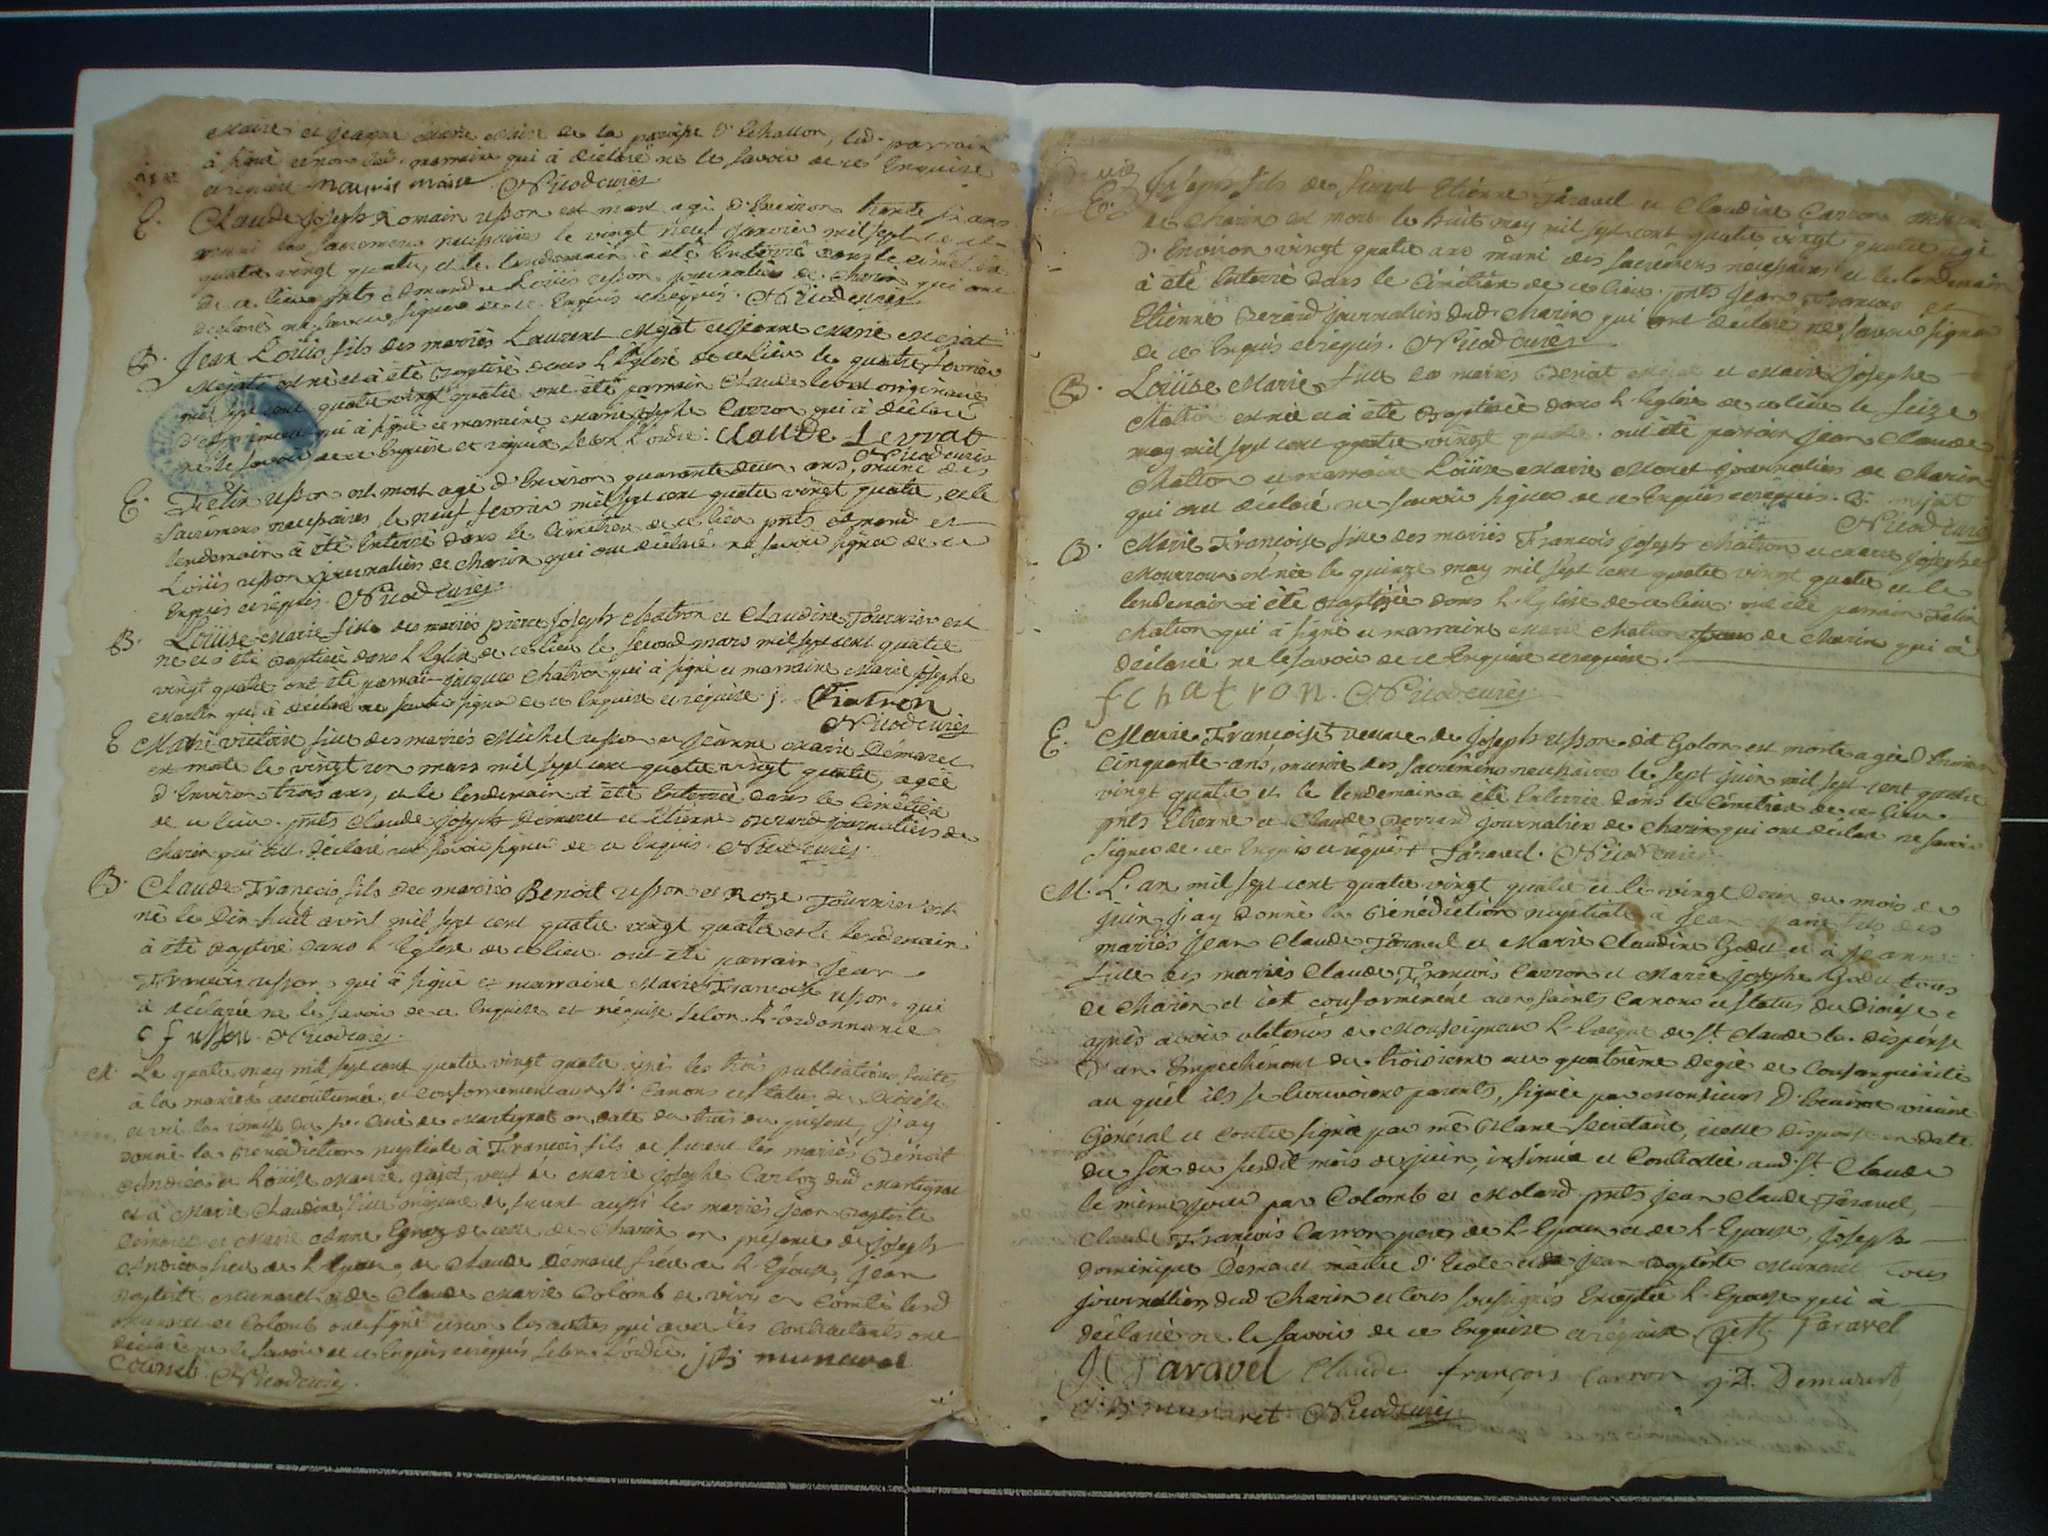 Maire et jeanne marie maire de la paroisse d'Echallon, led. parrain
à signé et non lad. marraine qui à déclaré ne le savoir de ce Enquise
et requise mauris maire. Nicod curéz
E. Claude Joseph Romain usson est mort agé d'Environ trente six ans
muni des sacremens necessaires le vingt neuf janvier mil sept cent
quatre vingt quatre, et le lendemain à été Enterré dans le cimetière
de ce lieu. prts Edmond et Loüis usson journaliers de charix qui ont
declarés ne savoir signer de ce Enquis et requis. Nicod curéz
B. Jean Loüis fils des mariés Laurent Mejat et jeanne Marie Mejat
Mejat est né et à été Baptisé dans l'Eglise de ce lieu le quatre fevrier
mil sept cent quatre vingt quatre ont été parrain Claude levrat originaire
qui à signé et marraine marie josephe Carron qui à declaré
ne le savoir de ce Enquise et requise selon l'ordre. Claude Levrat
Nicod curéz
E. Felix usson est mort agé d'Environ quarante deux ans, muni des
sacremens necessaires, le neuf fevrier mil sept cent quatre vingt quatre, et le
lendemain à été Enterré dans le Cimetiere de ce lieu prts edmond et
Loüis usson journaliers de charix qui ont déclaré ne savoir signer de ce
Enquis et requis. Nicod curéz
B. Loüise Marie fille des mariés pierre joseph Chatron et Claudine Tournier est
née et à été Baptisée dans l'Eglise de ce lieu le second mars mil sept cent quatre
vingt quatre ont été parrain jacques Chatron qui à signé et marraine Marie josephe
Martin qui à déclaré ne savoir signer de ce Enquise et requise j. Chatron
Nicod curéz
E Marie victoire fille des mariés Michel usson et jeanne marie Démaret
est morte le vingt un mars mil sept cent quatre vingt quatre, agée
d'Environ trois ans, et le lendemain à été Enterrée dans le Cimetiere
de ce lieu. prts Claude joseph Démaret et Etienne Berard journaliers de
charix qui ont déclaré ne savoir signer de ce Enquis. Nicod curéz
B. Claude François fils des mariés Benoit usson et Roze Tournier est
né le dix huit avril mil sept cent quatre vingt quatre et le lendemain
à été Baptisé dans l'Eglise de ce lieu. ont été parrain jean
François usson qui à signé et marraine Marie Françoise usson, qui
à déclarée ne le savoir de ce Enquise et réquise selon l'ordonnance
c f usson. Nicod curéz
M. Le quatre may mil sept cent quatre vingt quatre après les trois publications faites
à la maniere accoûtumée, et conformement aux sts. Canons et status du Diocése
et vû la remise du sr. Curé de Martignat en date du trois du présent, j'ay
donné la Bénédiction nuptiale à François fils de furent les mariés Bénoit
Andréa et Loüise Marie gajot, veuf de Marie josephe Carloz dud Martignat
et à Marie Claudine fille majeure de furent aussi les mariés jean Baptiste
Démaret et Marie Anne Egraz de celle de Charix en présence de joseph
Andréa frere de l'Epoux, de Claude Démaret frére de l'Epouse, jean
Baptiste Munaret et de Claude Marie Colomb de viry en Comté lesd
Munaret et Colomb ont signé et non les autres qui avec les Contractants ont
déclaré ne le savoir de ce Enquis et requis selon l'ordre. jB munaret
Coulomb. Nicod curéz
E. joseph fils de furent Etienne Taravel et Claudine Carron
de Charix est mort le huit may mil sept cent quatre vingt quatre agé
d'Environ vingt quatre ans muni des sacremens necessaires et le lendemain
à été Enterré dans le Cimétiere de ce lieu. prts jean François et
Etienne Berard journaliers dud. charix qui ont déclaré ne savoir signer
de ce Enquis et requis. Nicod curéz
B. Loüise Marie fille des mariés Benoit et Marie josephe
Chatron est née et à été Baptisée dans l'Eglise de ce lieu le seize
may mil sept cent quatre vingt quatre. ont été parrain jean Claude
Chatron et marraine Loüise Marie Monet journaliers de Charix
qui ont déclaré ne savoir signer de ce Enquis et requis. B. mejat
Nicod curéz
B. Marie Françoise fille des mariés François joseph Chatron et Marie josephe
Mourroux est née le quinze may mil sept cent quatre vingt quatre et le
lendemain à été Baptisée dans l'Eglise de ce lieu. ont été parrain Félix
Chatron qui à signé et marraine Marie Chatron de Charix qui à
déclarée ne le savoir de ce Enquise et requise.
f chatron. Nicod curéz
E. Marie Françoise veuve de joseph usson dit Golon est morte agée d'Environ
cinquante ans, munie des sacremens necessaires le sept juin mil sept cent quatre
vingt quatre et le lendemain à été Enterrée dans le Cémetiere de ce lieu
prts Etienne et Claude Berrard journaliers de charix qui ont déclaré ne savoir
signer de ce Enquis et requis Taravel. Nicod curéz
M. L'an mil sept cent quatre vingt quatre et le vingt deux du mois de
juin j'ay donné la Bénédiction nuptiale à jean marie fils des
mariés jean Claude Taravel et Marie Claudine Godet et à jeanne
fille des mariés Claude François Carron et Marie josephe Godet tous
de Charix et cet conformément aux saints Canons et status du Diocése
après avoir obtenus de Monseigneur l'Evêque de st. Claude la dispense
d'un Empechement du troisieme au quatrième degré de Consanguinité
au quél ils se trouvoient parents, signée par Monsieur d'Ecuires vicaire
Général et contre signée par me secretaire, icelle dispense en date
du six du susdit mois de juin, insinuée et Controlée aud. st. Claude
le même jour par Colomb et Molard. prts jean Claude Taravel,
Claude François Carron peres de l'Epoux et de l'Epouse, joseph
Dominique Démaret maitre d'Ecole et de jean Baptiste Munaret tous
journaliers dud Charix et tous soussignés Exceptée l'Epouse qui à
déclarée ne le savoir de ce Enquise et réquise Taravel
J C Taravel Claude françois carron jD. Demaret
J. B munaret Nicod curéz